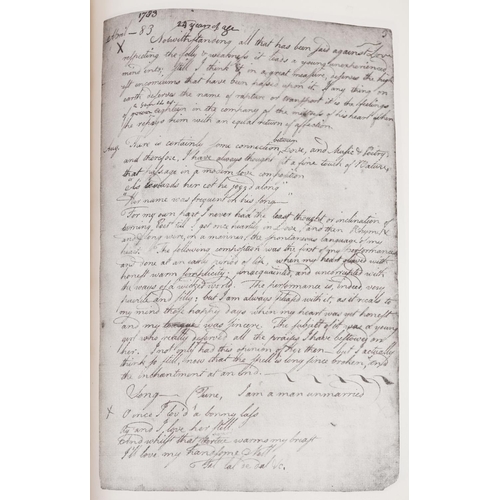 1783
April - 83   24 years of age
X Notwithstanding all that has been said against Love
respecting the folly & weakness it leads a young unexperienced
mind into; still I think it, in a great measure, deserves the high
encomiums that have been passed upon it. If any thing on
earth deserves the name of rapture or transport it is the feelings
of green eighteen in the company of the mistress of his heart when
she repays him with an equal return of affection
Aug. There is certainly some connection between Love, and Music & Poetry
and therefore, I have always thought it a fine touch of Nature,
that passage in a modern love composition
"As towards her cot he jogg'd along
"Her name was frequent in his song
For my own part I never had the least thought or inclination of
turning Poet till I got once heartily in Love, and then Rhyme &
Song were, in a manner, the spontaneous language of my
heart. The following composition was the first of my performances
and done at an early period of life, when my heart glowed with
honest warm simplicity; unacquainted, and uncorrupted with
the ways of a wicked world. The performance is, indeed, very
puerile and silly; but I am always pleased with it, as it recals to
my mind those happy days when my heart was yet honest
and my tongue was sincere. The subject of it was a young
girl who really deserved all the praises I have bestowed on
her. I not only had this opinion of her then — but I actually
think so still, now that the spell is long since broken, and
the enchantment at an end.
Song — (Tune, I am a man unmarried
X O once I lov'd a bonny lass
Ay and I love her still
And whilst that virtue warms my breast
I'll love my handsome Nell.
Fal lal de dal &c.